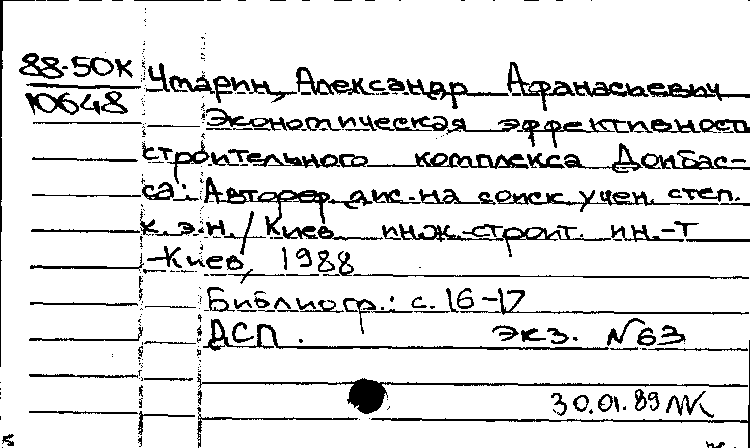 88-50К
10648
Чтарин, Александр Афанасьевич
Экономическая эффективность
строительного комплекса Донбас-
са: Автореф. дис. на соиск. учен. степ.
к. э. н. / Киев. инж.-строит. ин.-т
-Киев, 1988
Библиогр.: с. 16-17
ДСП. экз. №63
30.01.89